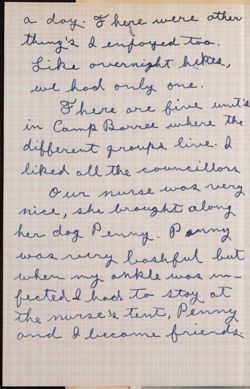 a day. There were other
thing's I enjoyed too.
Like overnight hikes,
we had only one.
There are five unit's
in Camp Barree where the
different groups live. I
liked all the councillors
Our nurse was very
nice, she brought along
her dog Penny. Penny
was very bashful but
when my ankle was in-
fected I had to stay at
the nurse's tent, Penny
and I became friends.